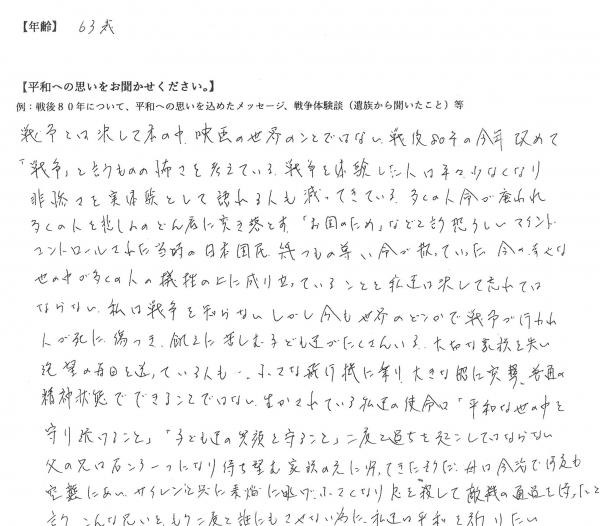 【年齢】 63才
【平和への思いをお聞かせください。】
例：戦後８０年について、平和への思いを込めたメッセージ、戦争体験談（遺族から聞いたこと）等
戦争とは決して本の中、映画の世界のことではない。戦後80年の今年 改めて
「戦争」と言うものの怖さを考えている。戦争を体験した人は年々少なくなり
非惨さを実体験として語れる人も減ってきている。多くの人命が奪われ
多くの人を悲しみのどん底に突き落とす。「お国のため」などと言う恐ろしいマインド
コントロールされた当時の日本国民 幾つもの尊い命が散っていった。今の平和な
世の中が多くの人の犠牲の上に成り立っていることを私達は決して忘れては
ならない。私は戦争を知らない しかし今も世界のどこかで戦争が行われ
人が死に、傷つき、飢えに苦しむ子ども達がたくさんいる。大切な家族を失い
絶望の毎日を送っている人も…。小さな飛行機に乗り、大きな船に突撃、普通の
精神状態でできることではない。生かされている私達の使命は「平和な世の中を
守り続けること」「子ども達の笑顔を守ること」二度と過ちを起こしてはならない
父の兄は石ころ一つになり待ち望む家族の元に帰ってきたそうだ。母は今治で何度も
空襲にあい、サイレンと共に 小さくなり息を殺して敵機の通過を待ったと
言う。こんな思いを、もう二度と誰にもさせない為に、私達は平和を祈りたい